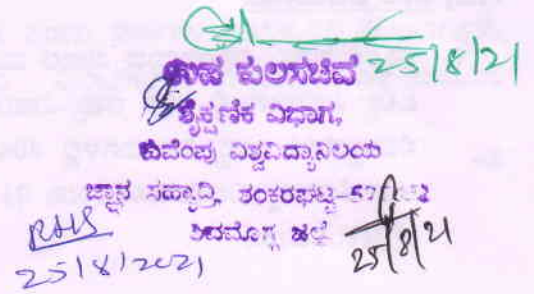 25/8/21
ಉಪ ಕುಲಸಚಿವ
ಶೈಕ್ಷಣಿಕ ವಿಭಾಗ,
ಕುವೆಂಪು ವಿಶ್ವವಿದ್ಯಾನಿಲಯ
ಜ್ಞಾನ ಸಹ್ಯಾದ್ರಿ, ಶಂಕರಘಟ್ಟ
ಶಿವಮೊಗ್ಗ ಜಿಲ್ಲೆ
25/8/21
25/8/2021